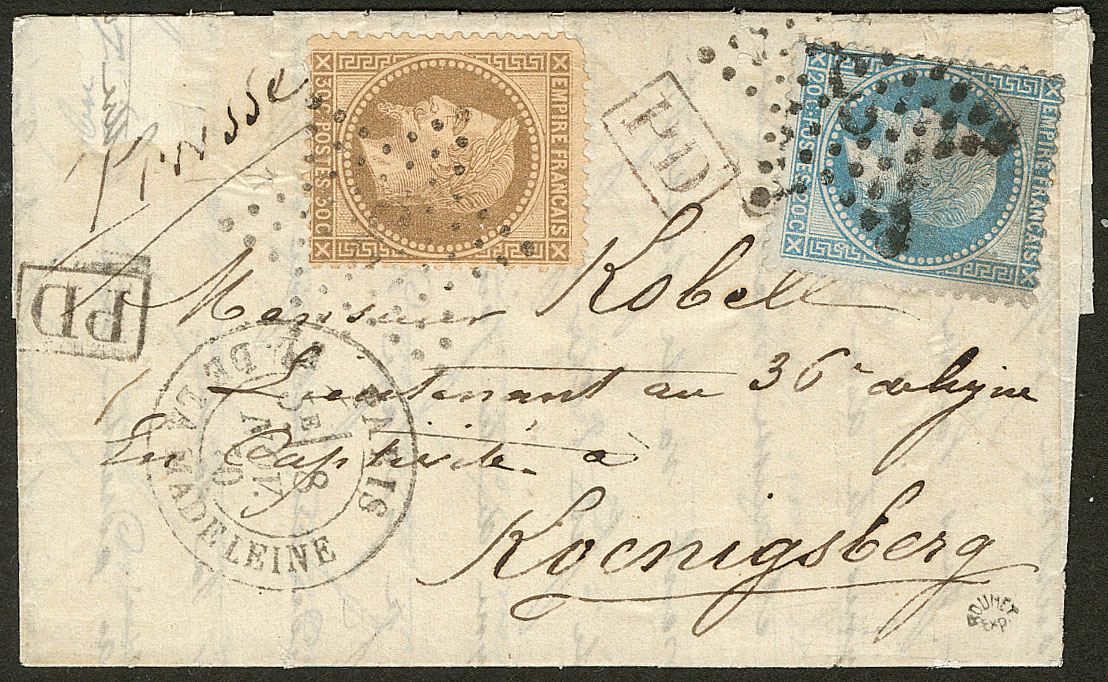 Prusse
EMPIRE FRANCAIS
30C POSTES 30C
PD
EMPIRE FRANCAIS
20C POSTES 20C
PD
Monsieur Kobell
Lieutenant au 36e de ligne
En Captivité à
Koenigsberg
PARIS
8
NOV.
DE LA MADELEINE
ROUMET
EXP.